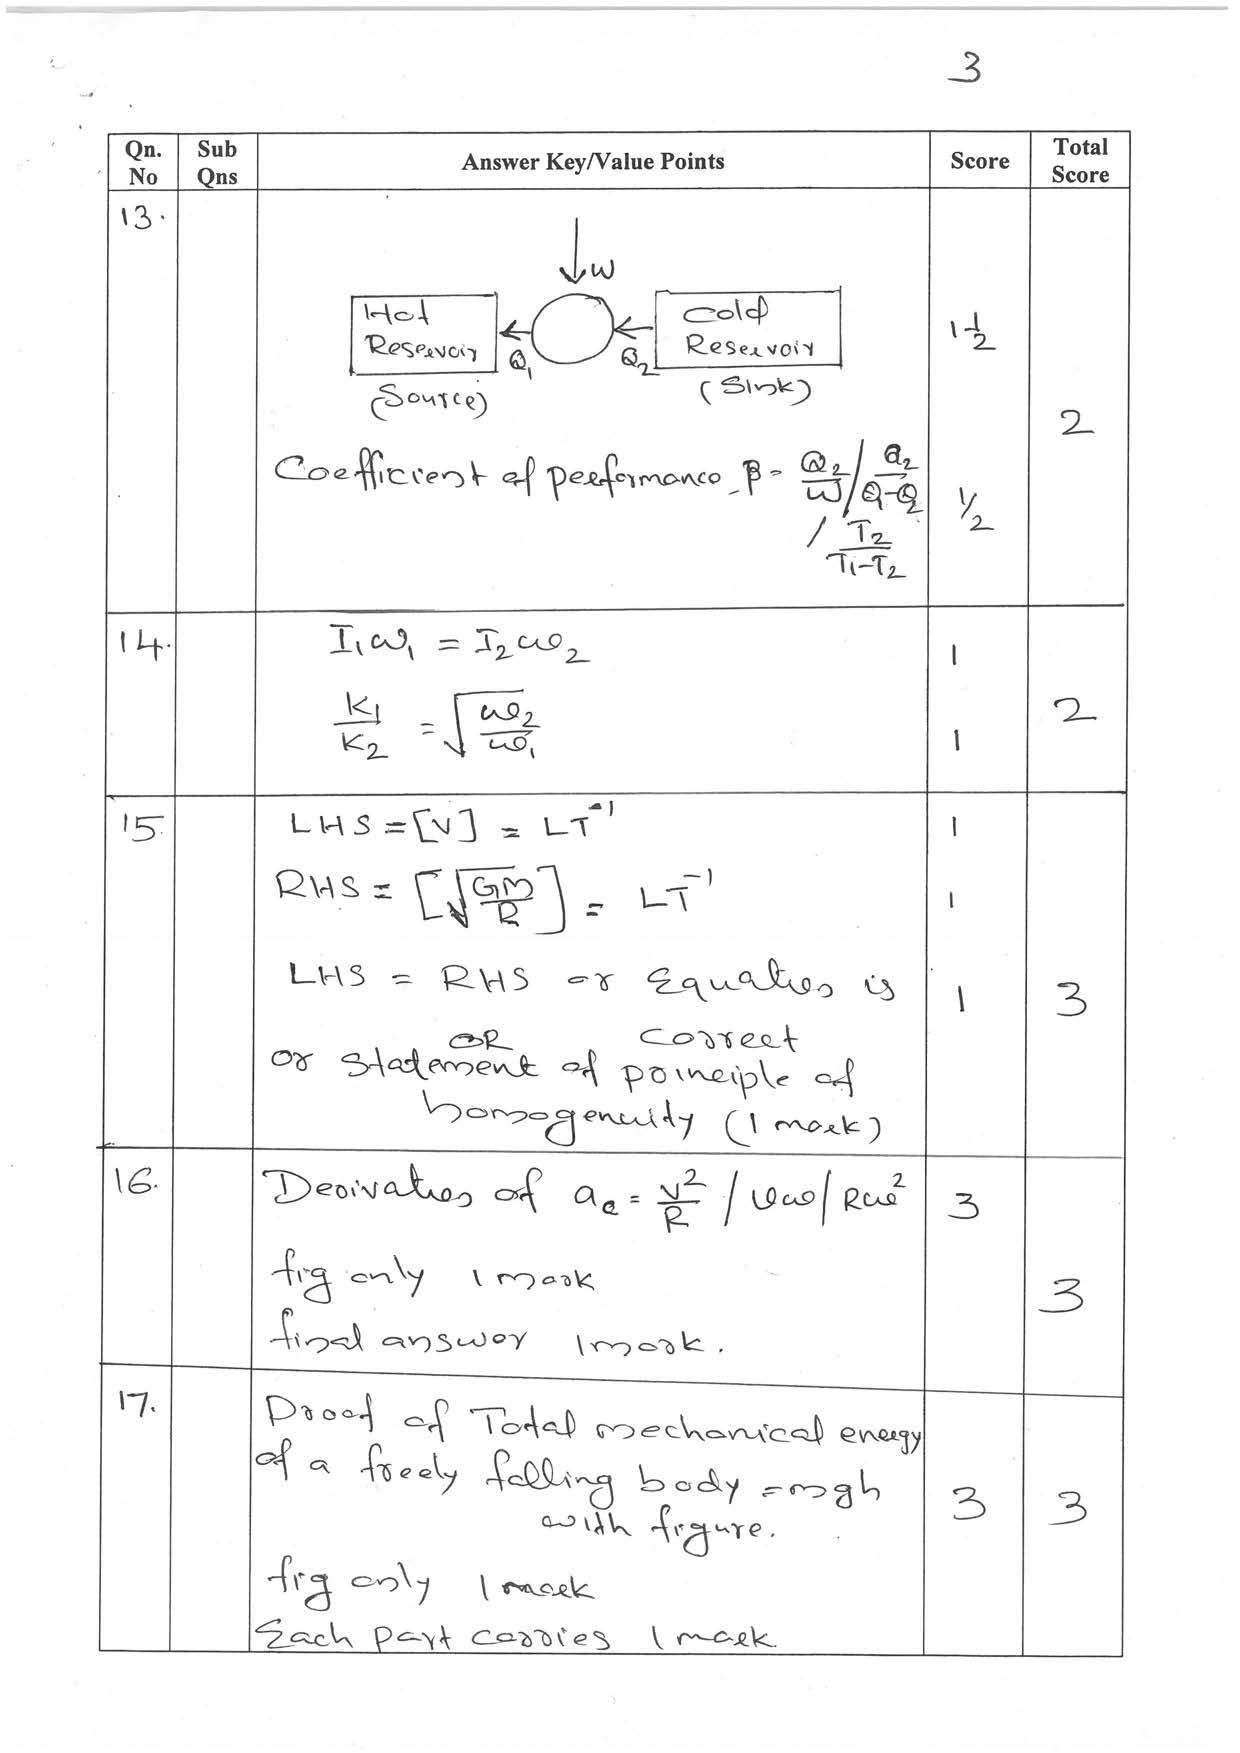 3
Qn. No | Sub Qns | Answer Key/Value Points | Score | Total Score
13.
W
Hot Reservoir
Q1
Q2
Cold Reservoir
(Source)
(Sink)
1 1/2
2
Coefficient of performance β = Q2/W / Q2/Q1-Q2
1/2
/ T2/T1-T2
14. I1ω1 = I2ω2 1
K1/K2 = √(ω2/ω1) 1 2
15. LHS = [V] = LT⁻¹ 1
RHS = [√(GM/R)] = LT⁻¹ 1
LHS = RHS or Equation is 1 3
correct
OR
or statement of principle of
homogenuity (1 mark)
16. Derivation of ac = v²/R / vω / Rω² 3
fig only 1 mark
3
final answer 1 mark.
17. Proof of Total mechanical energy
of a freely falling body = mgh 3 3
with figure.
fig only 1 mark
Each part carries 1 mark